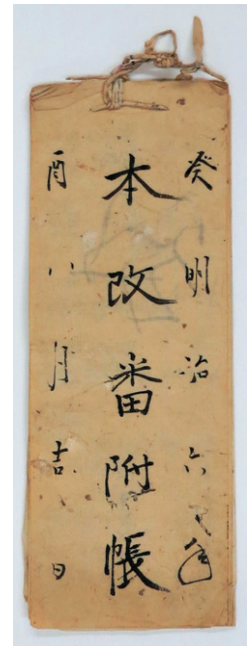 癸明治六年
本改番附帳
酉八月吉日